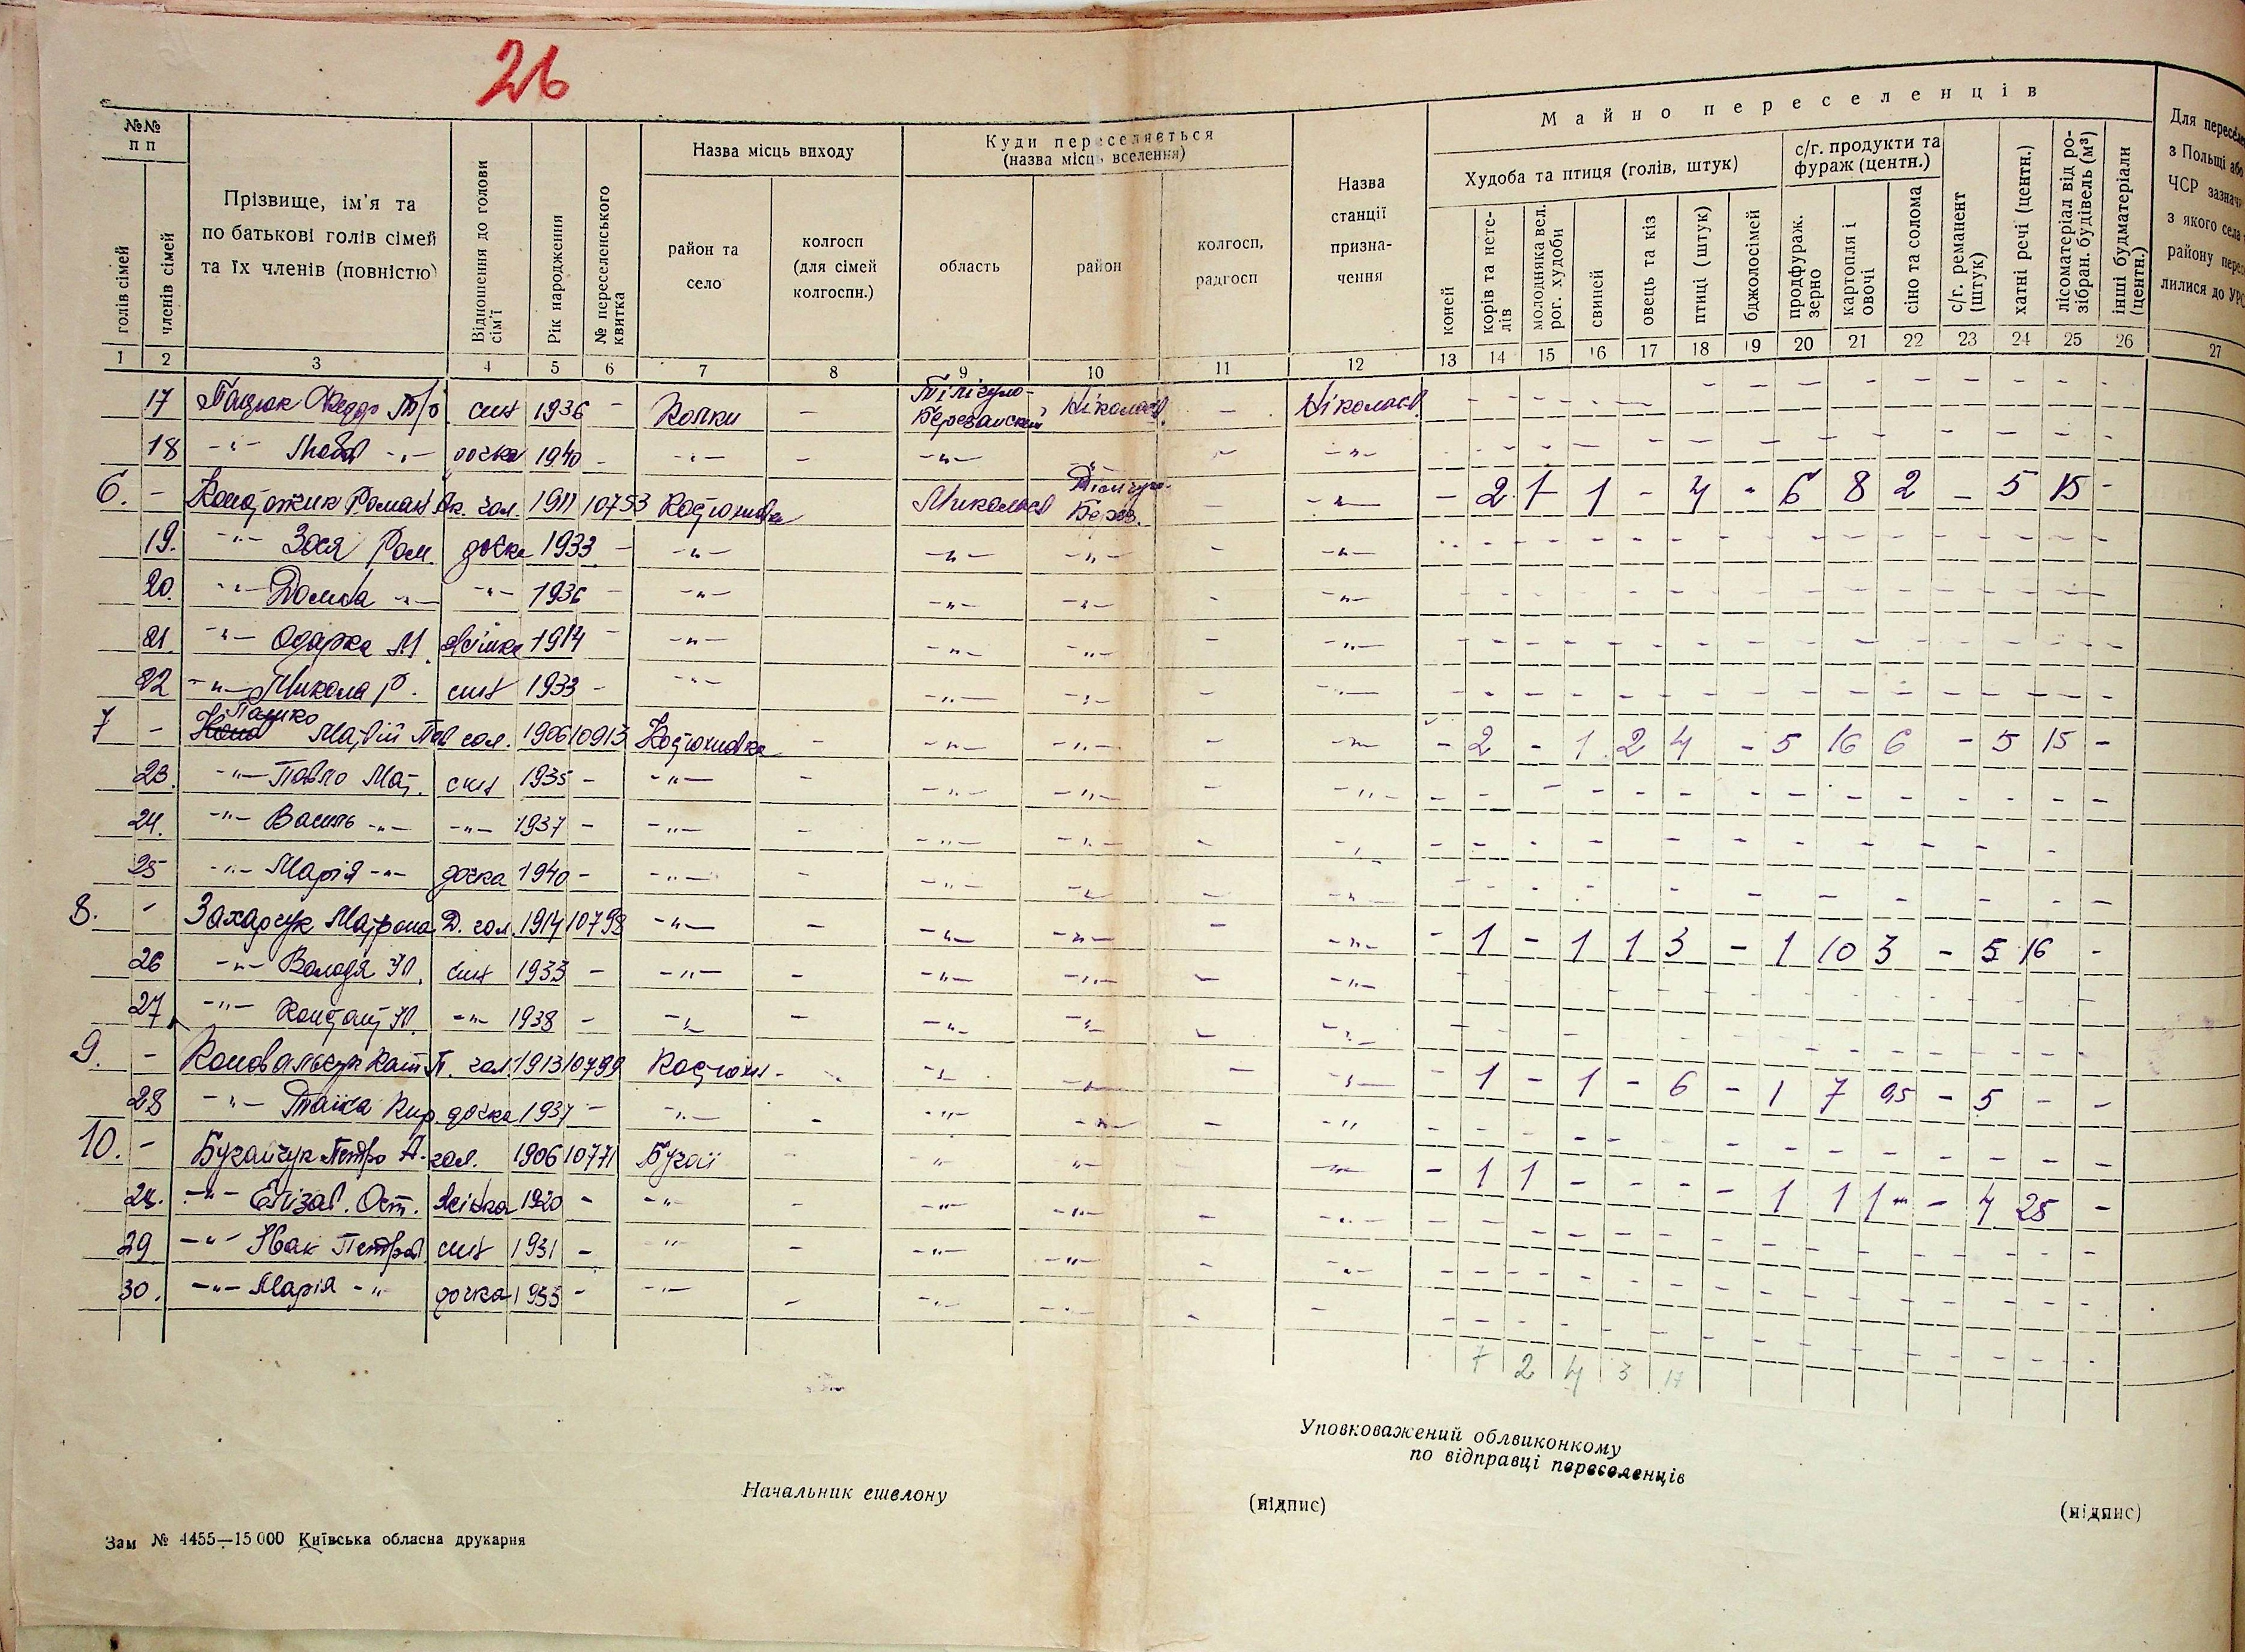 26
№№ п п
Прізвище, ім'я та по батькові голів сімей та їх членів (повністю)
Відношення до голови сім'ї
Рік народження
№ переселенського квитка
Назва місць виходу
Куди переселяється (назва місць вселення)
Назва станції призна- чення
Майно переселенців
голів сімей
членів сімей
район та село
колгосп (для сімей колгоспн.)
область
район
колгосп, радгосп
Худоба та птиця (голів, штук)
с/г. продукти та фураж (центн.)
коней
корів та нете- лів
молодняка вел. рог. худоби
свиней
овець та кіз
птиці (штук)
бджолосімей
продфураж. зерно
картопля і овочі
сіно та солома
с/г. реманент (штук)
хатні речі (центн.)
лісоматеріал від ро- зібран. будівель (м³)
інші будматеріали (центн.)
Для пересе
з Польщі або
ЧСР зазнач
з якого села
району перес
лилися до УРС
1 2 3 4 5 6 7 8 9 10 11 12 13 14 15 16 17 18 19 20 21 22 23 24 25 26 27
17 син 1936 - Колки - Тілігуло- Березанский Ніколаєв. - Ніколаєв.
18 -"- Люба -"- дочка 1940 - -"- - -"- -"- - -"-
6. - Роман Як. гол. 1911 10753 Костюхнівка Миколаєв Тілігуло- Берез. - -"- - 2 1 1 - 4 - 6 8 2 - 5 15 -
19. -"- Зося Ром. дочка 1933 - -"- -"- -"- - -"-
20. -"- Домка -"- -"- 1936 - -"- -"- -"- - -"-
21. -"- Одарка М. жінка 1914 - -"- -"- -"- - -"-
22 -"- Микола Р. син 1933 - -"- -"- -"- - -"-
7 - Пашко Матвій Пав. гол. 1906 10913 Костюхнівка - -"- -"- - -"- - 2 - 1 2 4 - 5 16 6 - 5 15 -
23. -"- Павло Мат. син 1935 - -"- - -"- -"- - -"-
24. -"- Василь -"- -"- 1937 - -"- - -"- -"- - -"-
25 -"- Марія -"- дочка 1940 - -"- - -"- -"- - -"-
8. - Захарчук Матрона Д. гол. 1914 10798 -"- - -"- -"- - -"- - 1 - 1 1 3 - 1 10 3 - 5 16 -
26 -"- Володя Ю. син 1933 - -"- - -"- -"- - -"-
27 -"- Ю. -"- 1938 - -"- - -"- -"- - -"-
9. - Коновальчук Кат. П. гол. 1913 10799 Костюхн. - -"- -"- - -"- - 1 - 1 - 6 - 1 7 0,5 - 5 - -
28 -"- Кир. дочка 1937 - -"- - -"- -"- - -"-
10. - Бугайчук Петро А. гол. 1906 10771 Бугаї - -"- -"- - -"- - 1 1 - - - - 1 1 1 - 4 25 -
28. -"- Елізав. Ост. жінка 1920 - -"- - -"- -"- - -"-
29 -"- Іван Петров син 1931 - -"- - -"- -"- - -"-
30. -"- Марія -"- дочка 1933 - -"- - -"- -"- - -
7 2 4 3 17
Уповноважений облвиконкому
по відправці переселенців
Начальник ешелону
(підпис) (підпис)
Зам № 4455—15 000 Київська обласна друкарня